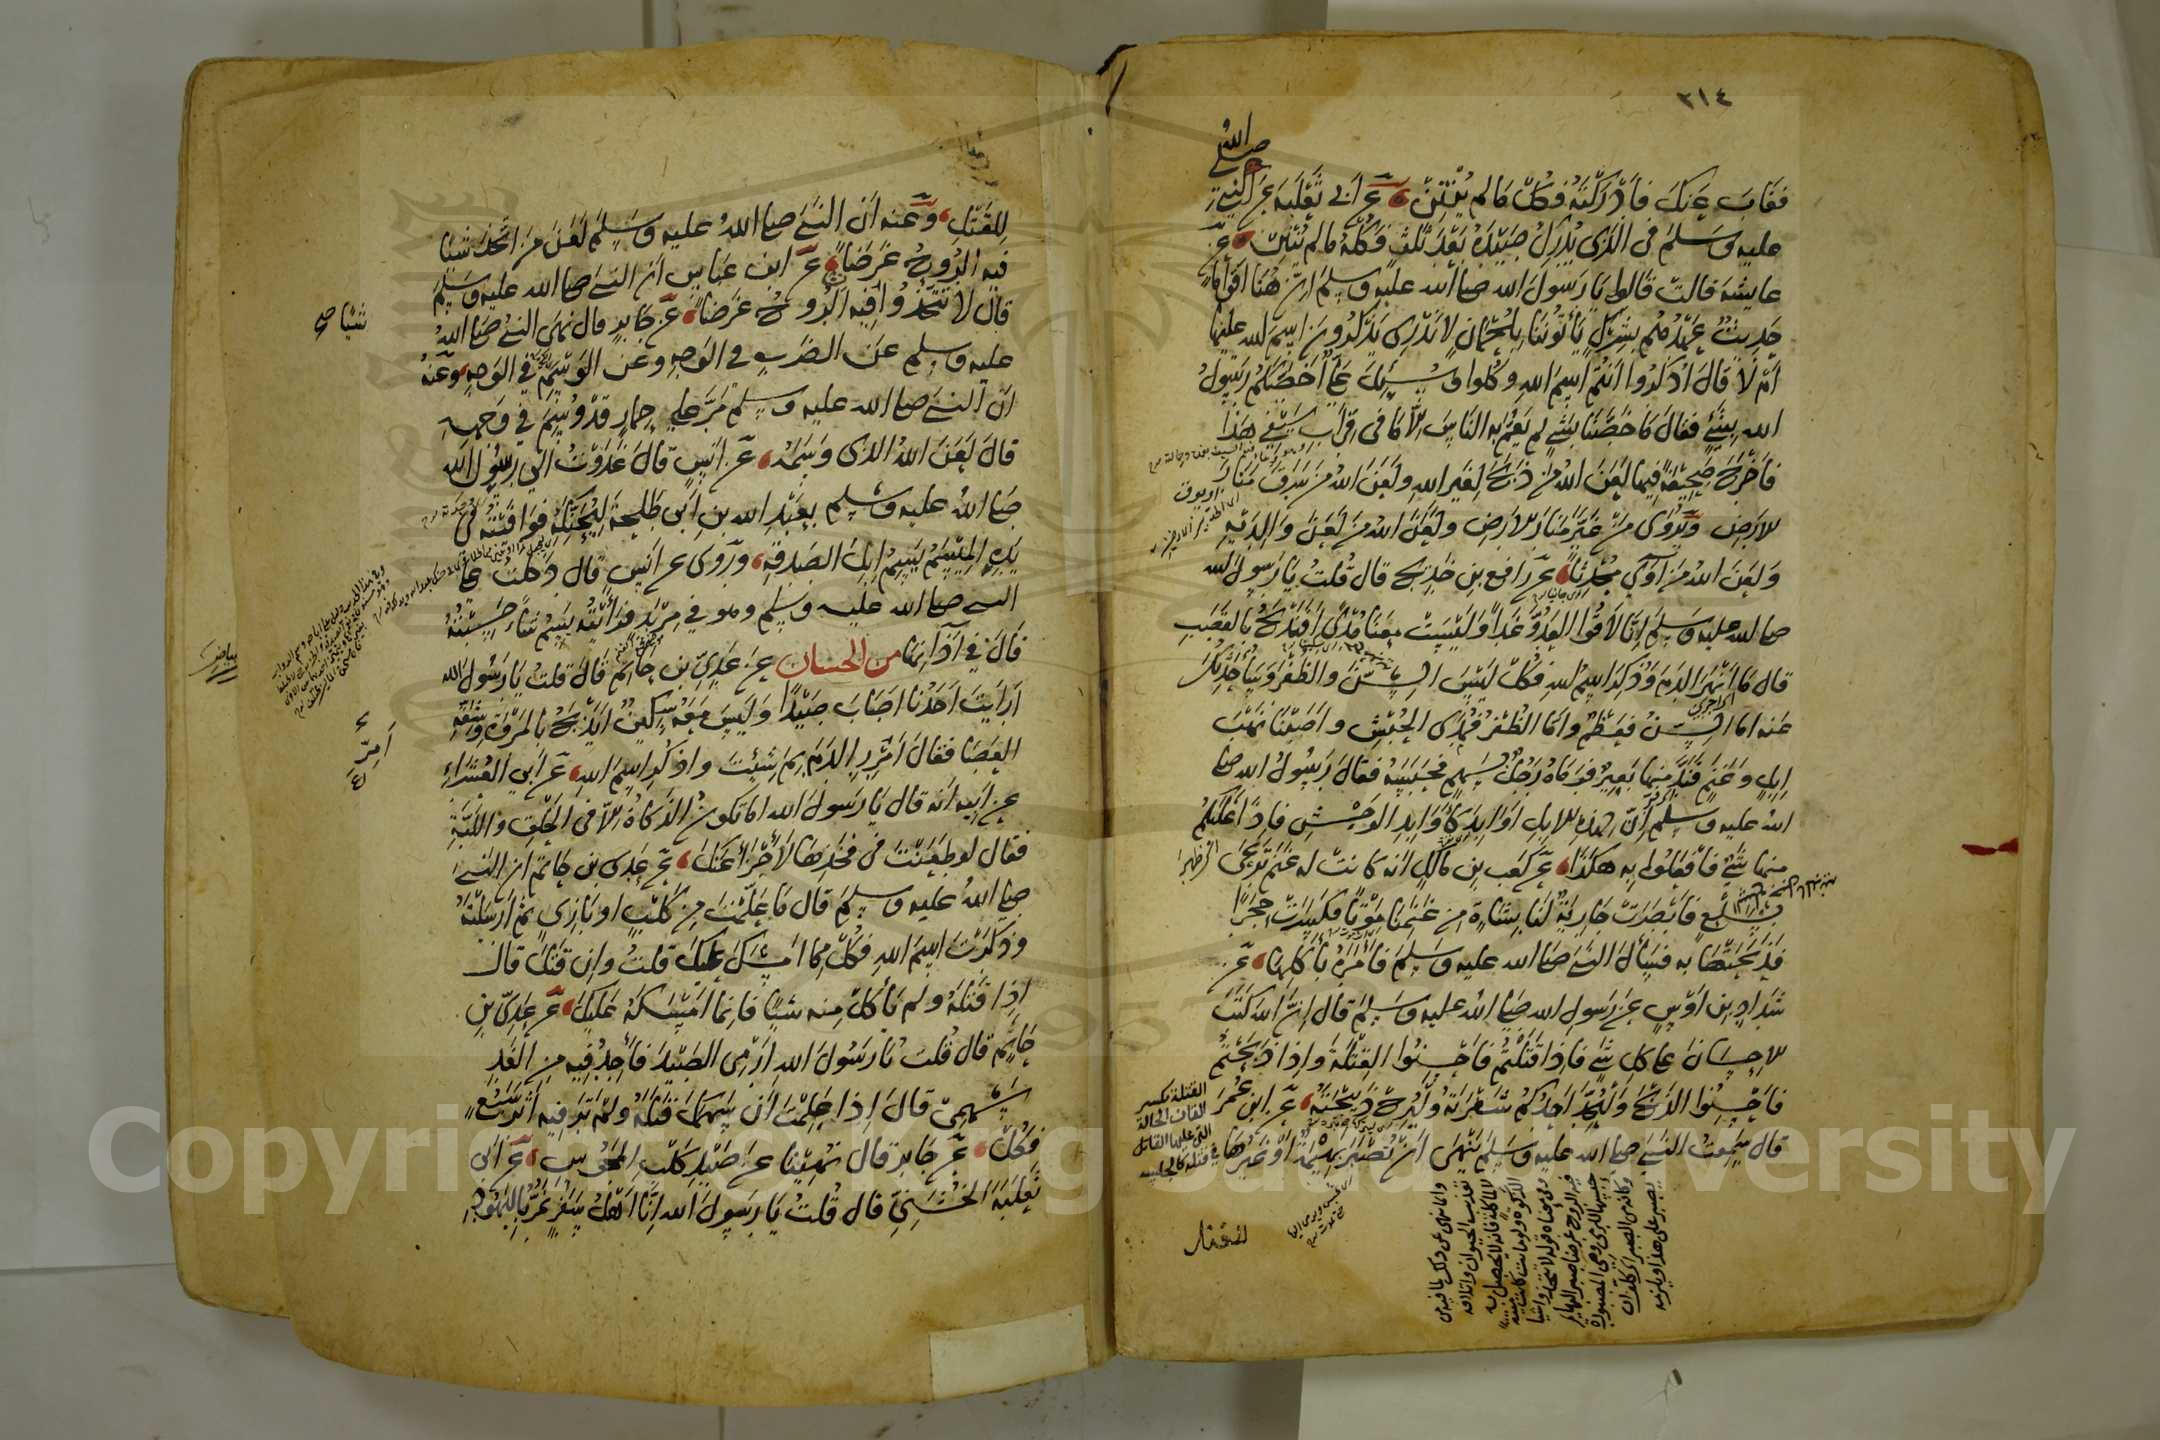 ٣١٤
صلى الله
فغاب عنك فأدركته فكل ما لم ينتن عن أبي ثعلبة عن النبي
عليه وسلم في الذي يدرك صيده بعد ثلث فكله ما لم ينتن عن
عايشة قالت قالوا يا رسول الله صلى الله عليه وسلم إن هنا أقواما
حديث عهدهم بشرك يأتوننا بلحمان لا ندري يذكرون اسم الله عليها
أم لا قال اذكروا أنتم اسم الله وكلوا وسئل علي أخصكم رسول
الله بشيء فقال ما خصنا بشيء لم يعم به الناس إلا ما في قراب سيفي هذا
فأخرج صحيفة فيها لعن الله من ذبح لغير الله ولعن الله من سرق منار
الارض ويروى من غير منار الارض ولعن الله من لعن والديه
ولعن الله من آوى محدثا عن رافع بن خديج قال قلت يا رسول الله
صلى الله عليه وسلم إنا لاقوا العدو غدا وليست معنا مدى أفنذبح بالقصب
قال ما أنهر الدم وذكر اسم الله فكل ليس السن والظفر وسأحدثك
عنه اما السن فعظم واما الظفر فمدى الحبش وأصبنا نهب
إبل وغنم فند منها بعير فرماه رجل بسهم فحبسه فقال رسول الله صلى
الله عليه وسلم إن لهذه الابل أوابد كأوابد الوحش فإذا غلبكم
منها شيء فافعلوا به هكذا عن كعب بن مالك انه كانت له غنم ترعى
بسلع فأبصرت جارية لنا بشاة من غنمنا موتا فكسرت حجرا
فذبحتها به فسأل النبي صلى الله عليه وسلم فأمره بأكلها عن
شداد بن أوس عن رسول الله صلى الله عليه وسلم قال إن الله كتب
الاحسان على كل شيء فإذا قتلتم فأحسنوا القتلة وإذا ذبحتم
فأحسنوا الذبح وليحد أحدكم شفرته وليرح ذبيحته عن ابن عمر
قال سمعت النبي صلى الله عليه وسلم ينهى أن تصبر بهيمة أو غيرها
القتلة بكسر
القاف الحالة
التي عليها القاتل
في قتله كالجلسة
للقتل
للقتل وعنه أن النبي صلى الله عليه وسلم لعن من اتخذ شيا
فيه الروح غرضا عن ابن عباس أن النبي صلى الله عليه وسلم
قال لا تتخذوا فيه الروح غرضا عن جابر قال نهى النبي صلى الله
شيئا صح
عليه وسلم عن الضرب في الوجه وعن الوسم في الوجه وعنه
أن النبي صلى الله عليه وسلم مر على حمار قد وسم في وجهه
قال لعن الله الذي وسمه عن أنس قال غدوت الى رسول الله
صلى الله عليه وسلم بعبد الله بن أبي طلحة ليحنكه فوافيته في
يده الميسم يسم إبل الصدقة ويروى عن أنس قال دخلت على
النبي صلى الله عليه وسلم وهو في مربد فرأيته يسم شاء حسبته
قال في آذانها من الحسان عن عدي بن حاتم قال قلت يا رسول الله
أرأيت أحدنا أصاب صيدا وليس معه سكين أيذبح بالمروة وشقة
العصا فقال أمرر الدم بم شئت واذكر اسم الله عن أبي العشراء
أمر
عن أبيه انه قال يا رسول الله اما تكون الذكاة إلا في الحلق واللبة
فقال لو طعنت في فخذها لأجزأ عنك عن عدي بن حاتم ان النبي
صلى الله عليه وسلم قال ما علمت من كلب او بازي ثم أرسلته
وذكرت اسم الله فكل مما امسك عليك قلت وإن قتل قال
إذا قتله ولم يأكل منه شيا فإنما أمسكه عليك عن عدي بن
حاتم قال قلت يا رسول الله أرمي الصيد فأجد فيه من الغد
سهمي قال إذا علمت أن سهمك قتله ولم تر فيه أثر سبع
فكل عن جابر قال نهينا عن صيد كلب المجوس عن أبي
ثعلبة الخشني قال قلت يا رسول الله إنا أهل سفر نمر باليهود
Copyright © King Saud University